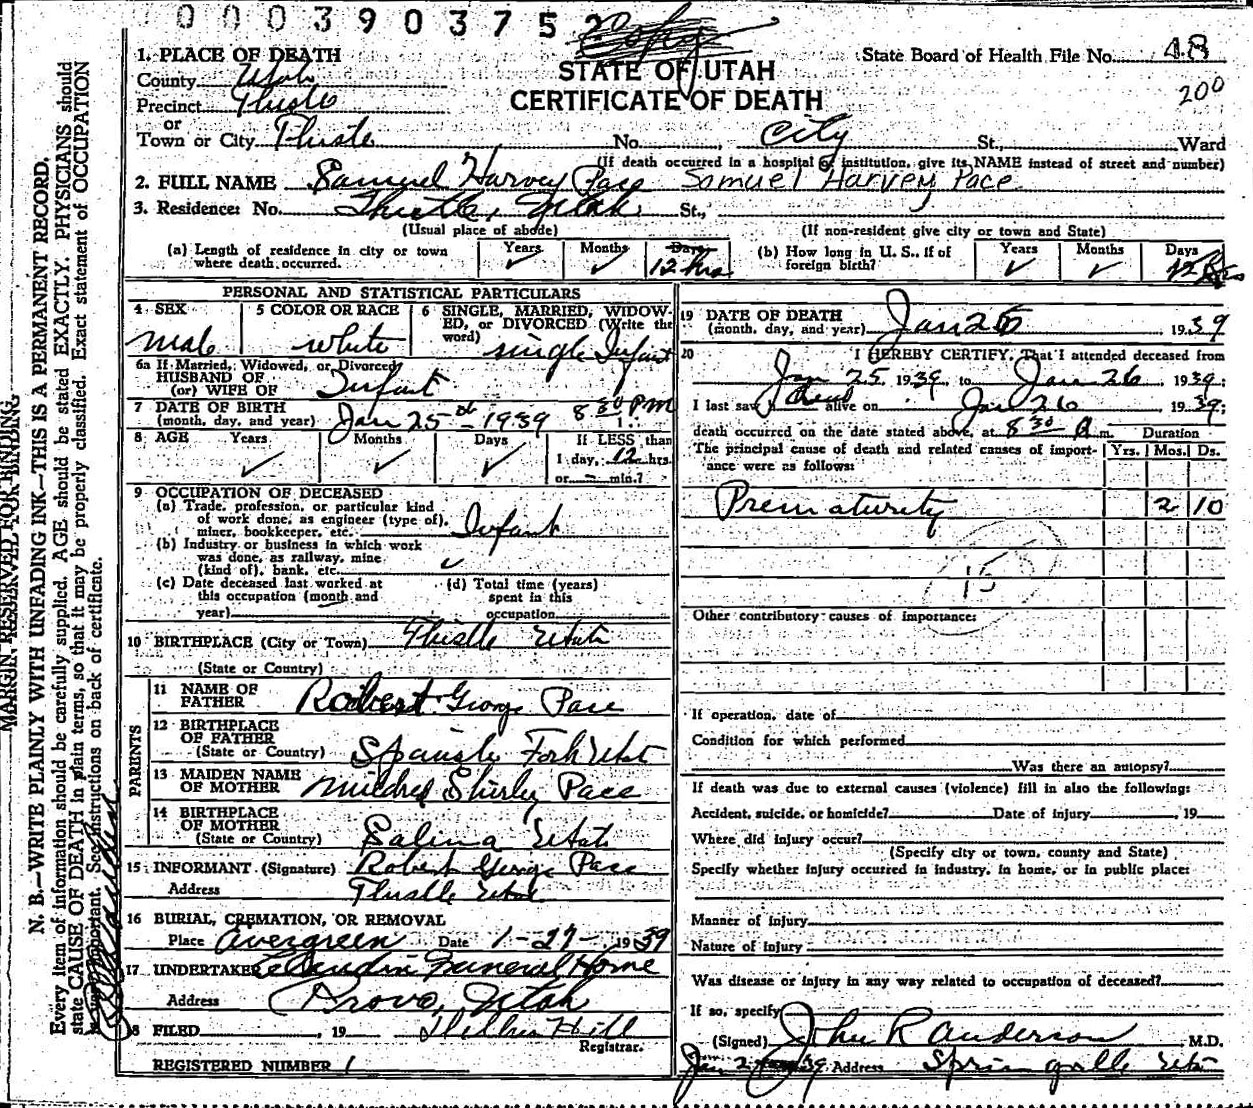 0 0 0 3 9 0 3 7 5 2
Copy
1. PLACE OF DEATH
STATE OF UTAH
CERTIFICATE OF DEATH
State Board of Health File No. 48
200
County Utah
Precinct Thistle
or
Town or City Thistle No. , City St., Ward
(If death occurred in a hospital or institution, give its NAME instead of street and number)
2. FULL NAME Samuel Harvey Pace Samuel Harvey Pace
3. Residence: No. Thistle, Utah St.,
(Usual place of abode) (If non-resident give city or town and State)
(a) Length of residence in city or town where death occurred. Years ✓ Months ✓ Days 12 hrs
(b) How long in U. S., if of foreign birth? Years ✓ Months ✓ Days 12 hrs
PERSONAL AND STATISTICAL PARTICULARS
4 SEX male
5 COLOR OR RACE white
6 SINGLE, MARRIED, WIDOWED, or DIVORCED (Write the word) single Infant
6a If Married, Widowed, or Divorced
HUSBAND OF
(or) WIFE OF Infant
7 DATE OF BIRTH
(month, day, and year) Jan 25th - 1939 8 30 PM
8 AGE Years ✓ Months ✓ Days ✓ If LESS than 1 day, 12 hrs.
or - min.?
9 OCCUPATION OF DECEASED
(a) Trade, profession, or particular kind
of work done, as engineer (type of),
miner, bookkeeper, etc. Infant
(b) Industry or business in which work
was done, as railway, mine
(kind of), bank, etc. ✓
(c) Date deceased last worked at
this occupation (month and
year)
(d) Total time (years)
spent in this
occupation
10 BIRTHPLACE (City or Town) Thistle Utah
(State or Country)
PARENTS
11 NAME OF
FATHER Robert George Pace
12 BIRTHPLACE
OF FATHER
(State or Country) Spanish Fork Utah
13 MAIDEN NAME
OF MOTHER Mildred Shirley Pace
14 BIRTHPLACE
OF MOTHER
(State or Country) Salina Utah
15 INFORMANT (Signature) Robert George Pace
Address Thistle Utah
16 BURIAL, CREMATION, OR REMOVAL
Place Evergreen Date 1-27- 1939
17 UNDERTAKER Claudin Funeral Home
Address Provo, Utah
18 FILED , 19
Registrar.
REGISTERED NUMBER 1
19 DATE OF DEATH
(month, day, and year) Jan 26 1939
20 I HEREBY CERTIFY, That I attended deceased from
Jan 25 1939, to Jan 26 1939;
I last saw h alive on Jan 26 1939;
death occurred on the date stated above, at 8 30 A m.
Duration
The principal cause of death and related causes of importance were as follows: Yrs. Mos. Ds.
Prematurity 2 10
15
Other contributory causes of importance:
If operation, date of
Condition for which performed
Was there an autopsy?
If death was due to external causes (violence) fill in also the following:
Accident, suicide, or homicide? Date of injury , 19
Where did injury occur?
(Specify city or town, county and State)
Specify whether injury occurred in industry, in home, or in public place:
Manner of Injury
Nature of Injury
Was disease or injury in any way related to occupation of deceased?
If so, specify
(Signed) John R Anderson M.D.
Jan 39 Address Springville Utah
MARGIN RESERVED FOR BINDING
N. B.—WRITE PLAINLY WITH UNFADING INK—THIS IS A PERMANENT RECORD.
Every item of information should be carefully supplied. AGE should be stated EXACTLY. PHYSICIANS should
state CAUSE OF DEATH in plain terms, so that it may be properly classified. Exact statement of OCCUPATION
important. See instructions on back of certificate.